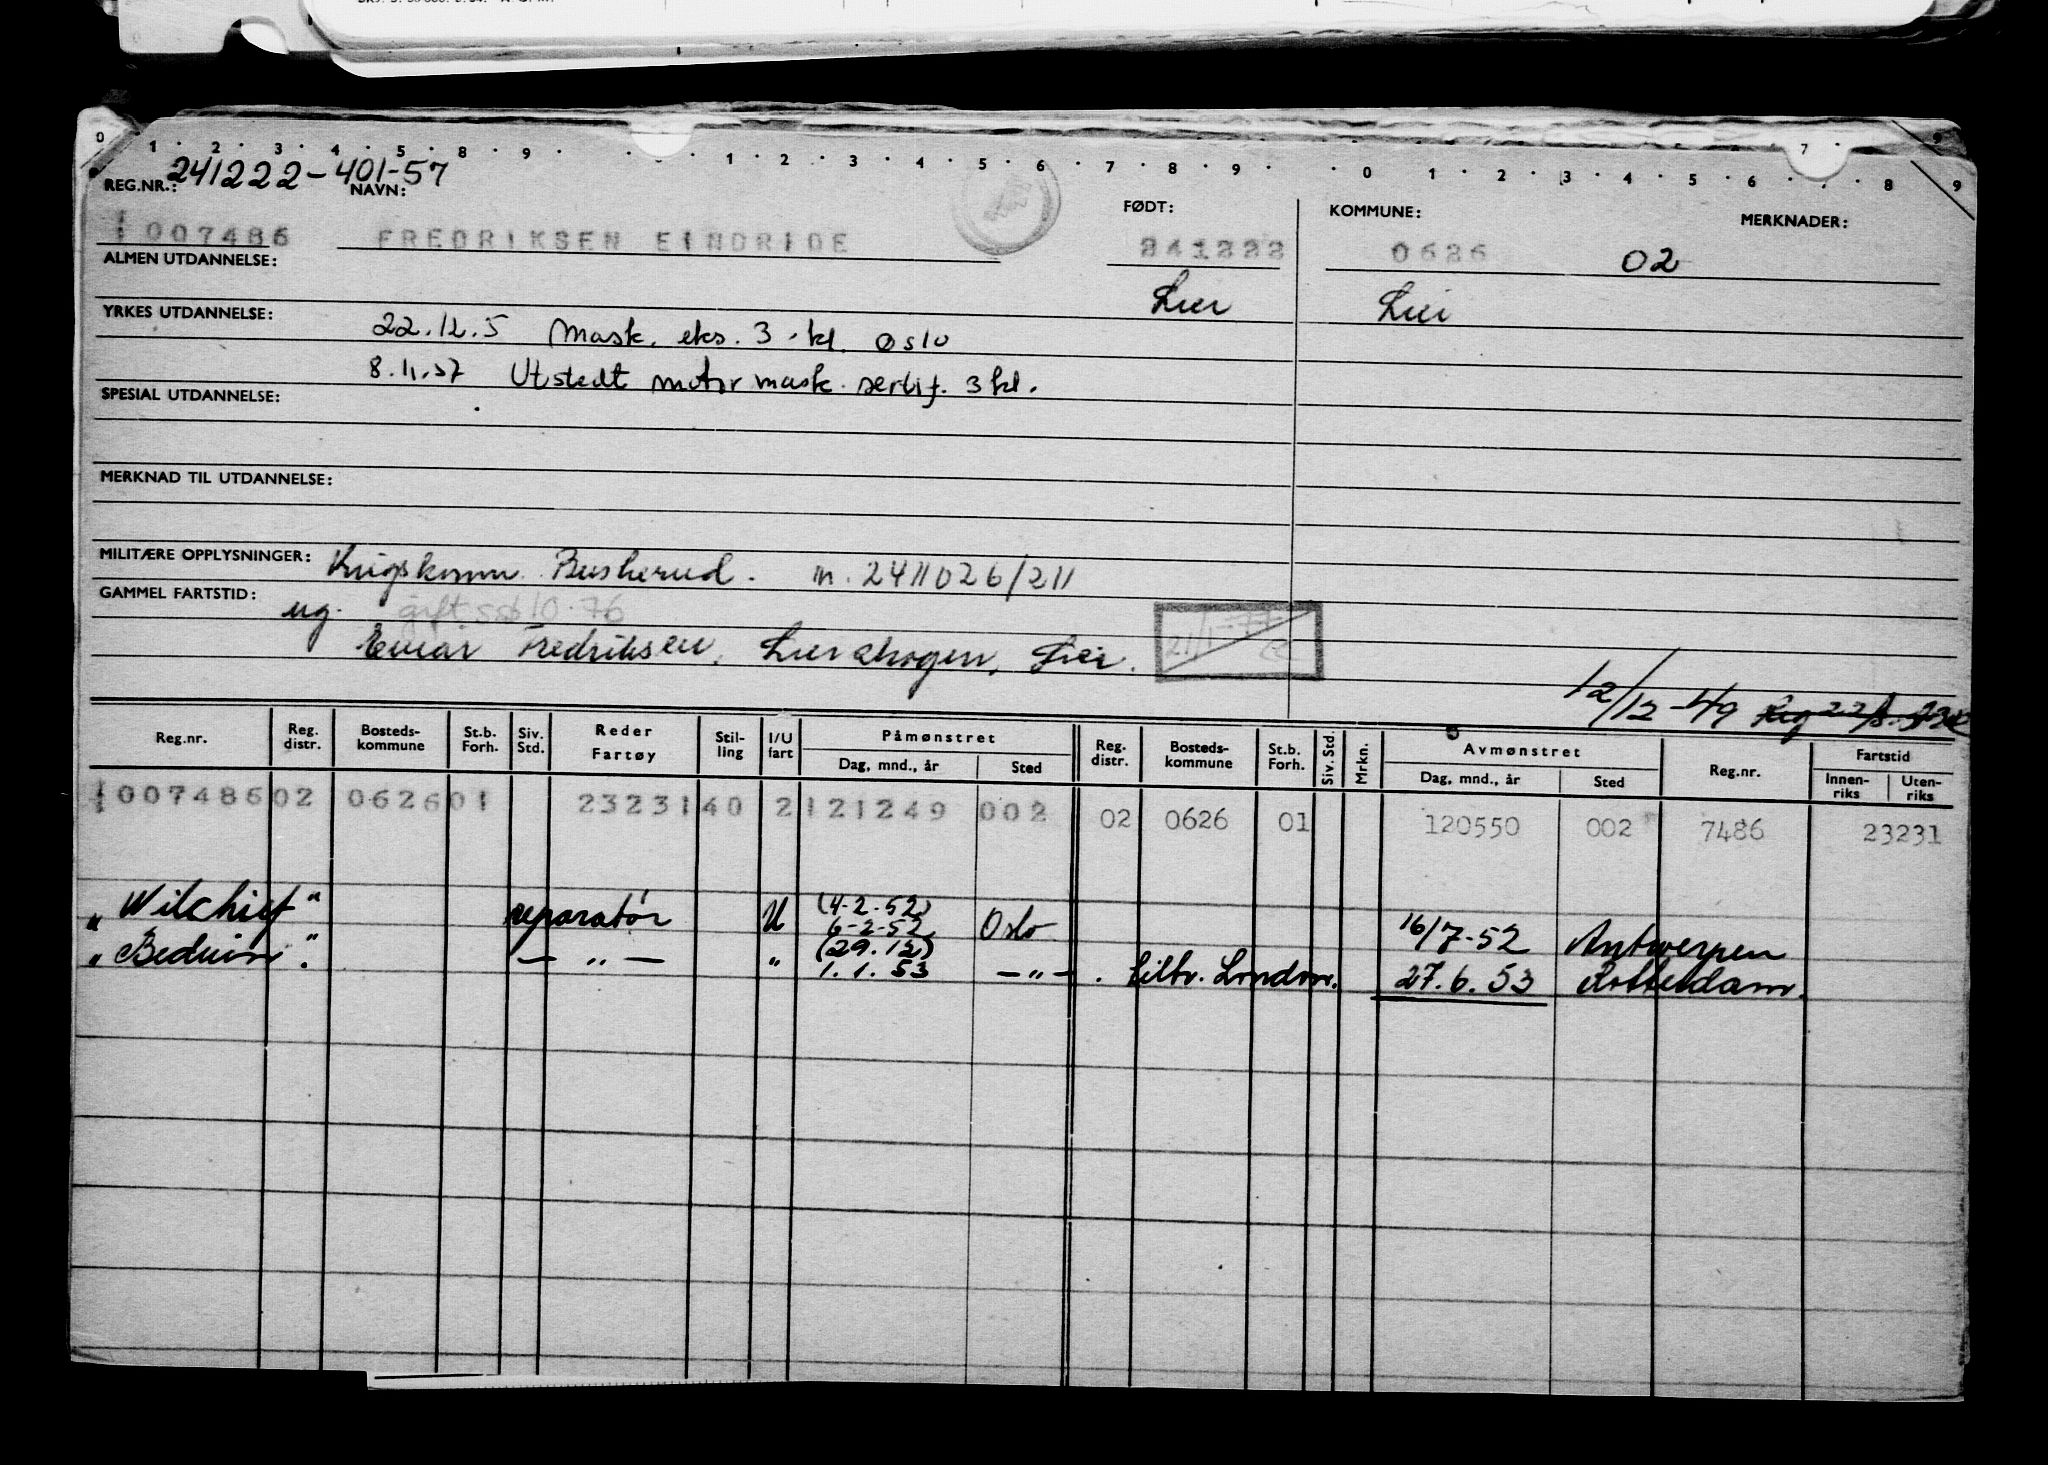 0 1 2 3 4 5 8 9 1 2 3 4 5 6 7 8 9 0 1 2 3 4 5 6 7 8 9
241222-401-57
REG.NR.: NAVN: FØDT: KOMMUNE: MERKNADER:
007486 FREDRIKSEN EINDRIDE 241222 0626 02
ALMEN UTDANNELSE: Lier Lier
YRKES UTDANNELSE: 22.12.5 Mask. eks. 3. kl. Oslo
8.11.57 Utstedt motormask. sertif. 3 kl.
SPESIAL UTDANNELSE:
MERKNAD TIL UTDANNELSE:
MILITÆRE OPPLYSNINGER: Krigskomm. Buskerud. m. 2411026/211
GAMMEL FARTSTID: ug. gift 10.76
Fredriksen, Lierskogen, Lier. 21/1-77
12/12-49
Reg.nr. Reg. distr. Bosteds-kommune St.b. Forh. Siv. Std. Reder Fartøy Stil-ling I/U fart Påmønstret Dag, mnd., år Sted Reg. distr. Bosteds-kommune St.b. Forh. Siv. Std. Mrkn. Avmønstret Dag, mnd., år Sted Reg.nr. Fartstid Innen-riks Uten-riks
007486 02 0626 01 23231 40 2 121249 002 02 0626 01 120550 002 7486 23231
"Wilchief" reparatør U (4-2-52) 6-2-52 Oslo 16/7-52 Antwerpen
"Beduin". — " — " (29.12) 1.1.53 — " — . London. 27.6.53 Rotterdam.